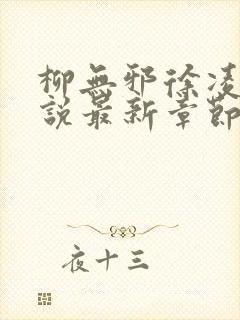 柳無邪徐凌
說最新章節
夜十三